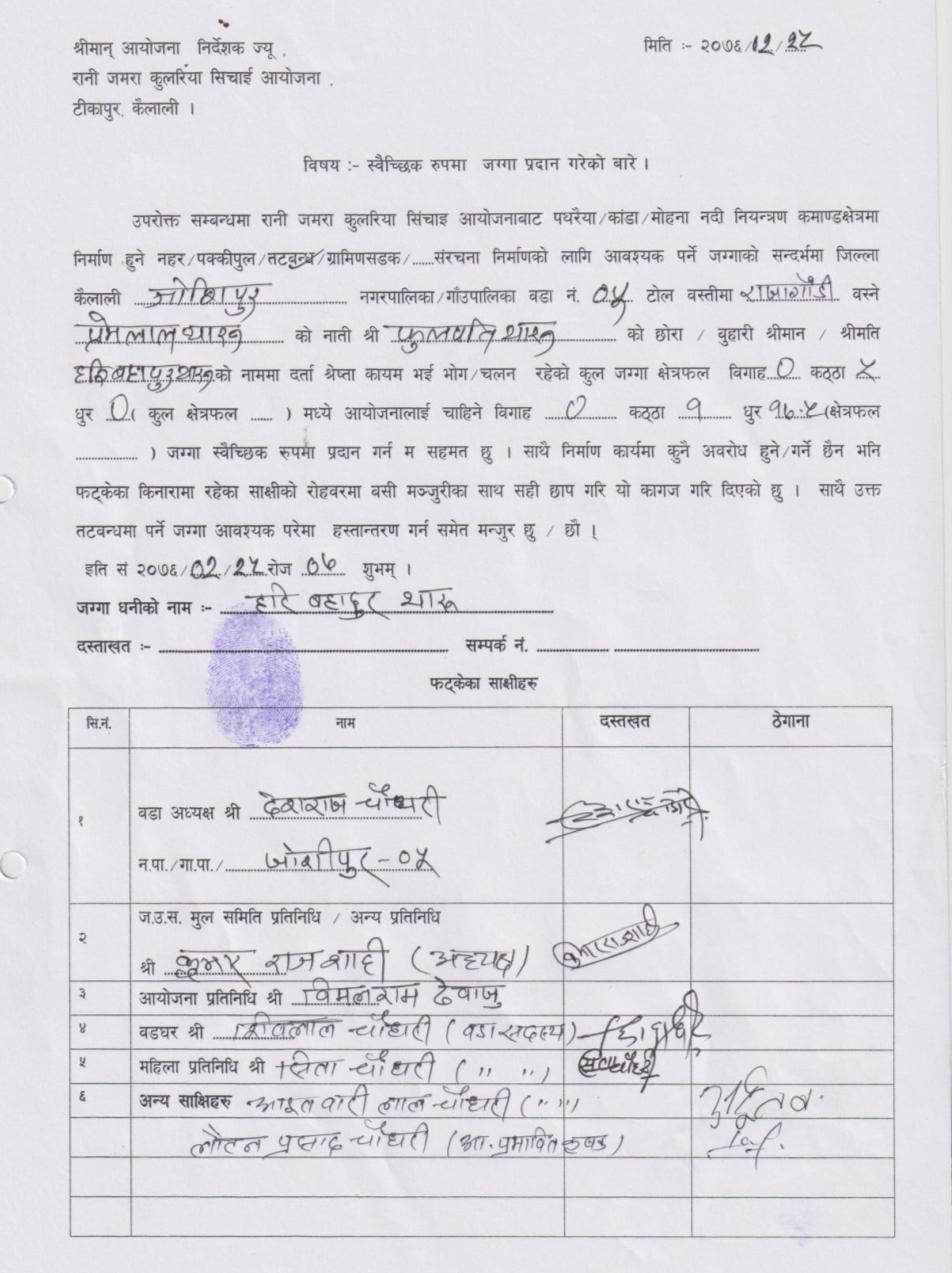 श्रीमान् आयोजना निर्देशक ज्यू .
मिति :- २०७६/१२/२५
रानी जमरा कुलरिया सिचाई आयोजना .
टीकापुर, कैलाली ।
विषय :- स्वैच्छिक रुपमा जग्गा प्रदान गरेको बारे ।
उपरोक्त सम्बन्धमा रानी जमरा कुलरिया सिंचाइ आयोजनाबाट पथरैया/कांडा/मोहना नदी नियन्त्रण कमाण्डक्षेत्रमा
निर्माण हुने नहर/पक्कीपुल/तटबन्ध/ग्रामिणसडक/......संरचना निर्माणको लागि आवश्यक पर्ने जग्गाको सन्दर्भमा जिल्ला
कैलाली जोशिपुर नगरपालिका/गाँउपालिका वडा नं. ०५ टोल वस्तीमा वस्ने
प्रेमलाल थारु को नाती श्री फुलपति थारु को छोरा / बुहारी श्रीमान / श्रीमति
हरि बहादुर थारु को नाममा दर्ता श्रेप्ता कायम भई भोग/चलन रहेको कुल जग्गा क्षेत्रफल विगाह ० कठ्ठा ५
धुर ० ( कुल क्षेत्रफल ...... ) मध्ये आयोजनालाई चाहिने विगाह ० कठ्ठा १ धुर १७.५ (क्षेत्रफल
............... ) जग्गा स्वैच्छिक रुपमा प्रदान गर्न म सहमत छु । साथै निर्माण कार्यमा कुनै अवरोध हुने/गर्ने छैन भनि
फट्केका किनारामा रहेका साक्षीको रोहवरमा वसी मञ्जुरीका साथ सही छाप गरि यो कागज गरि दिएको छु । साथै उक्त
तटवन्धमा पर्ने जग्गा आवश्यक परेमा हस्तान्तरण गर्न समेत मन्जुर छु / छौ ।
इति सं २०७६/०२/२५ रोज ०७ शुभम् ।
जग्गा धनीको नाम :- हरि बहादुर थारू
दस्ताखत :- सम्पर्क नं.
फट्केका साक्षीहरु
सि.नं. नाम दस्तखत ठेगाना
१ वडा अध्यक्ष श्री देशराज चौधरी
न.पा./गा.पा./ जोशीपुर - ०५
२ ज.उ.स. मुल समिति प्रतिनिधि / अन्य प्रतिनिधि
श्री कुमार राज शाही (अध्यक्ष)
३ आयोजना प्रतिनिधि श्री विमलराम देवाजु
४ वडघर श्री शिवलाल चौधरी (वडा सदस्य)
५ महिला प्रतिनिधि श्री सिता चौधरी ( ,, ,, )
६ अन्य साक्षिहरु आइतवारी लाल चौधरी ( ,, ,, )
लौटन प्रसाद चौधरी (आ. प्रभावित कृषक)